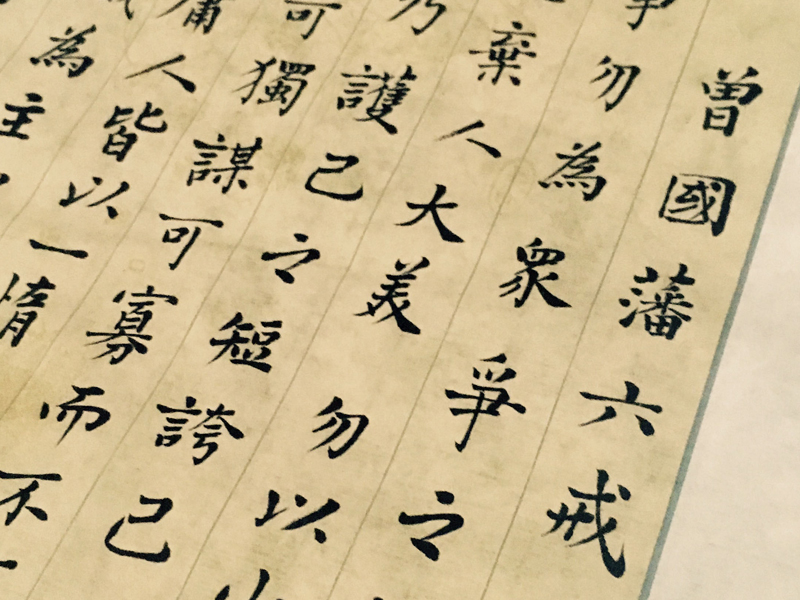 曾國藩六戒
爭勿為眾爭之
棄人大美勿以
乃護己之短誇己
可獨謀可寡而不
庸人皆以一惰
為主